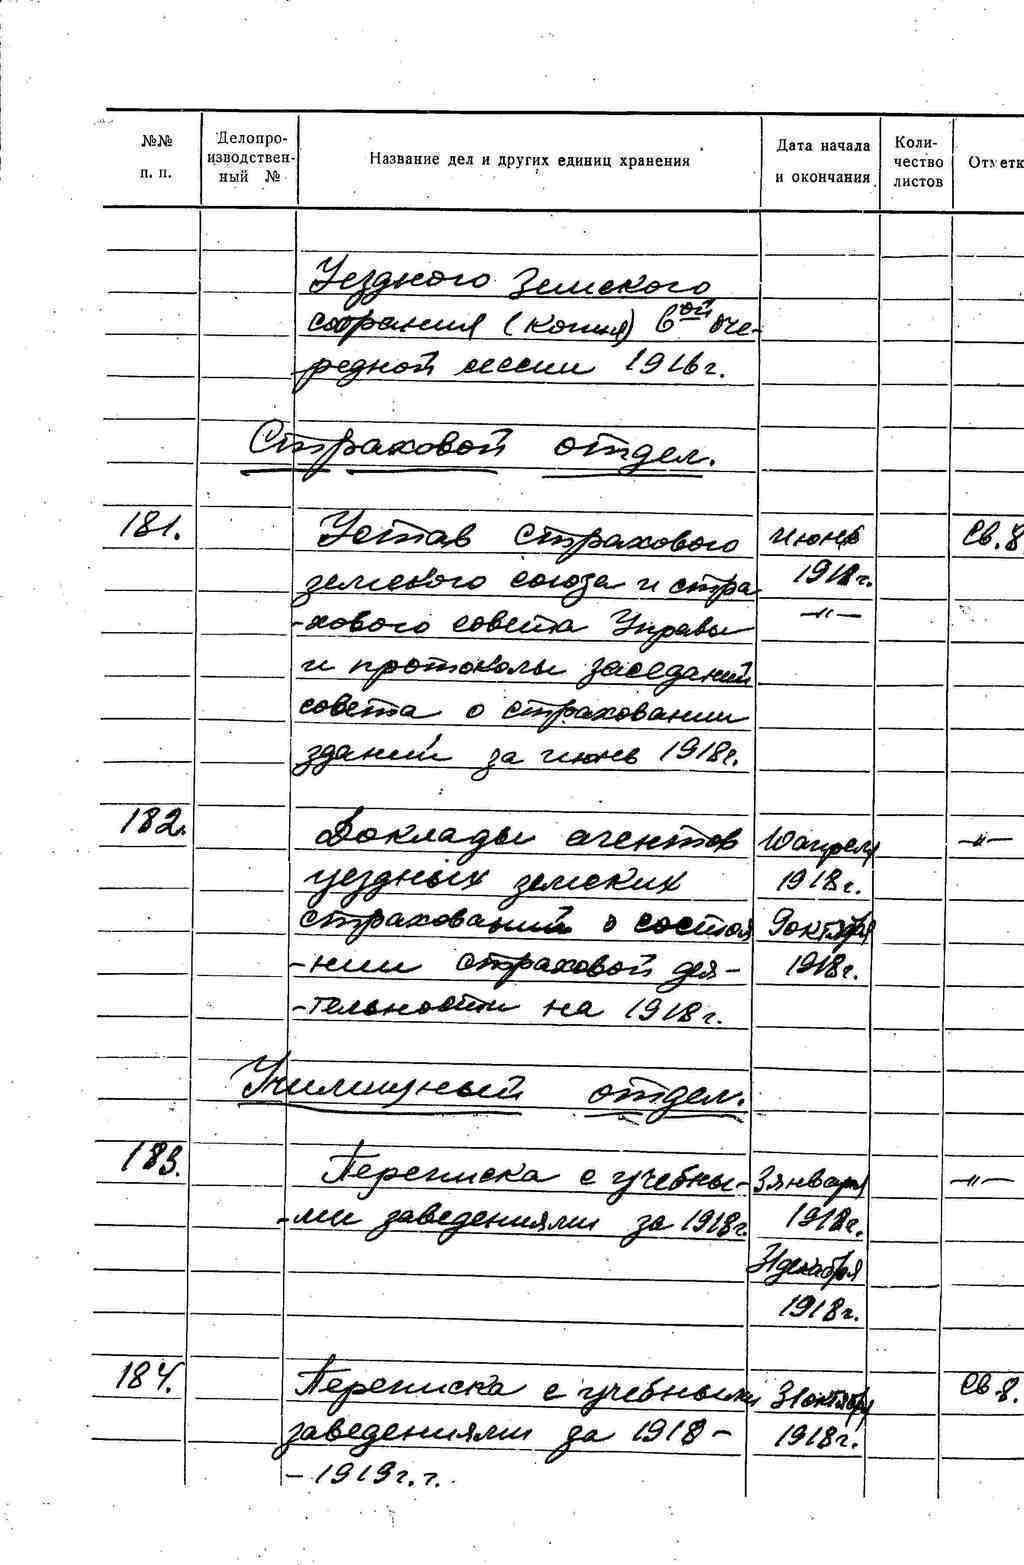 №№ п. п.
Делопроизводственный №
Название дел и других единиц хранения
Дата начала и окончания
Количество листов
Отметк
Уездного Земского
собрания (копия) 6ой оче-
редной сессии 1916г.
Страховой отдел.
181. Устав Страхового июнь Св. 8
земского союза и стра 1918г.
-хового совета Управы -"-
и протоколы заседаний
совета о страховании
зданий за июнь 1918г.
182. Доклады агентов 10 апреля -"-
уездных земских 1918г.
страхований о состоя 9 октября
-нии страховой дея- 1918г.
-тельности на 1918г.
Училищный отдел.
183. Переписка с учебны- 3 января -"-
-ми заведениями за 1918г. 1918г.
31 декабря
1918г.
184. Переписка с учебными 31 октября Св. 8.
заведениями за 1918- 1918г.
-1919г.г.